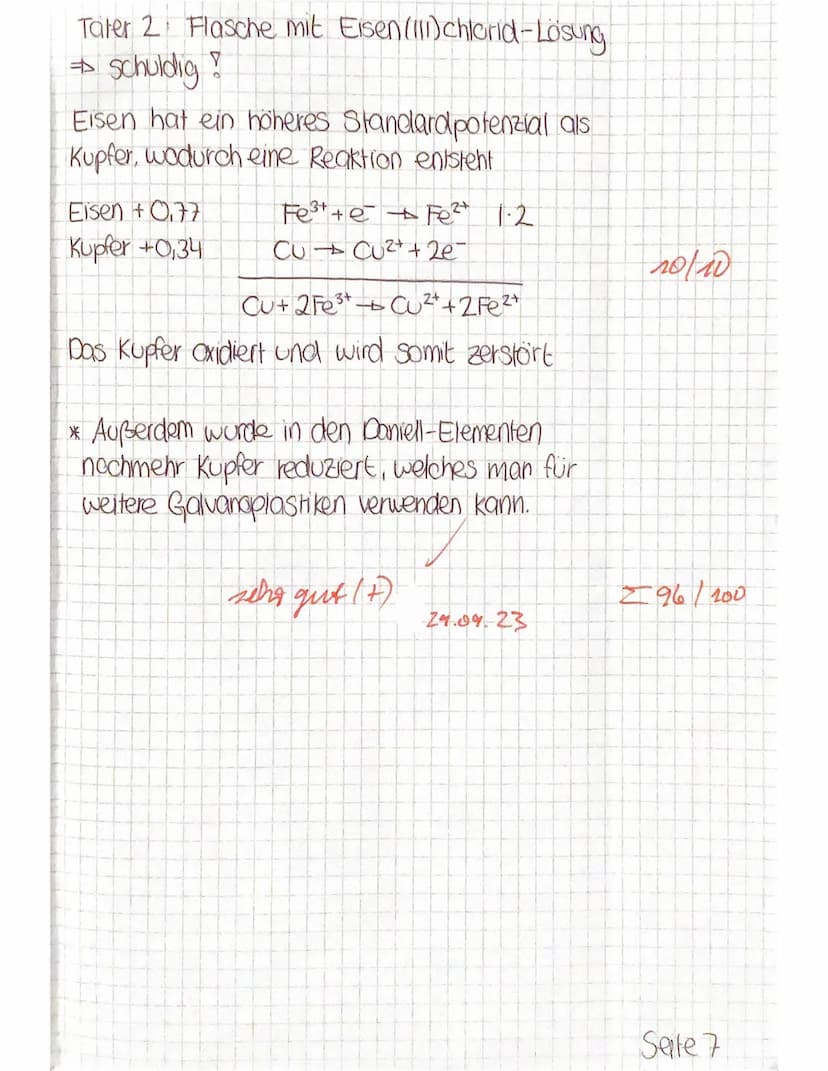 Täter 2: Flasche mit Eisen(III)chlorid-Lösung
⇒ schuldig!
Eisen hat ein höheres Standardpotenzial als
Kupfer, wodurch eine Reaktion entsteht
Eisen +0,77 Fe³⁺ + e⁻ → Fe²⁺ |·2
Kupfer +0,34 Cu → Cu²⁺ + 2e⁻
10/10
Cu + 2Fe³⁺ → Cu²⁺ + 2Fe²⁺
Das Kupfer oxidiert und wird somit zerstört
* Außerdem wurde in den Daniell-Elementen
nochmehr Kupfer reduziert, welches man für
weitere Galvanoplastiken verwenden kann.
sehr gut (+) Σ 96/100
29.09.23
Seite 7